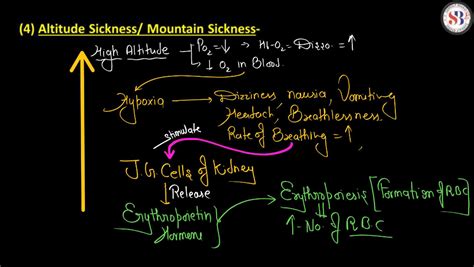 SB
(4) Altitude Sickness/ Mountain Sickness-
High Altitude → PO2 = ↓ → Hb-O2 = Disso. = ↑
→ ↓ O2 in Blood.
Hypoxia → Dizziness, nausia, Vomiting
Headach, Breathlessness.
Rate of Breathing = ↑
stimulate
J.G. Cells of Kidney
↓ Release
Erythroporetin → Erythropoiesis [Formation of RBC]
Hormone
↑ No. of RBC